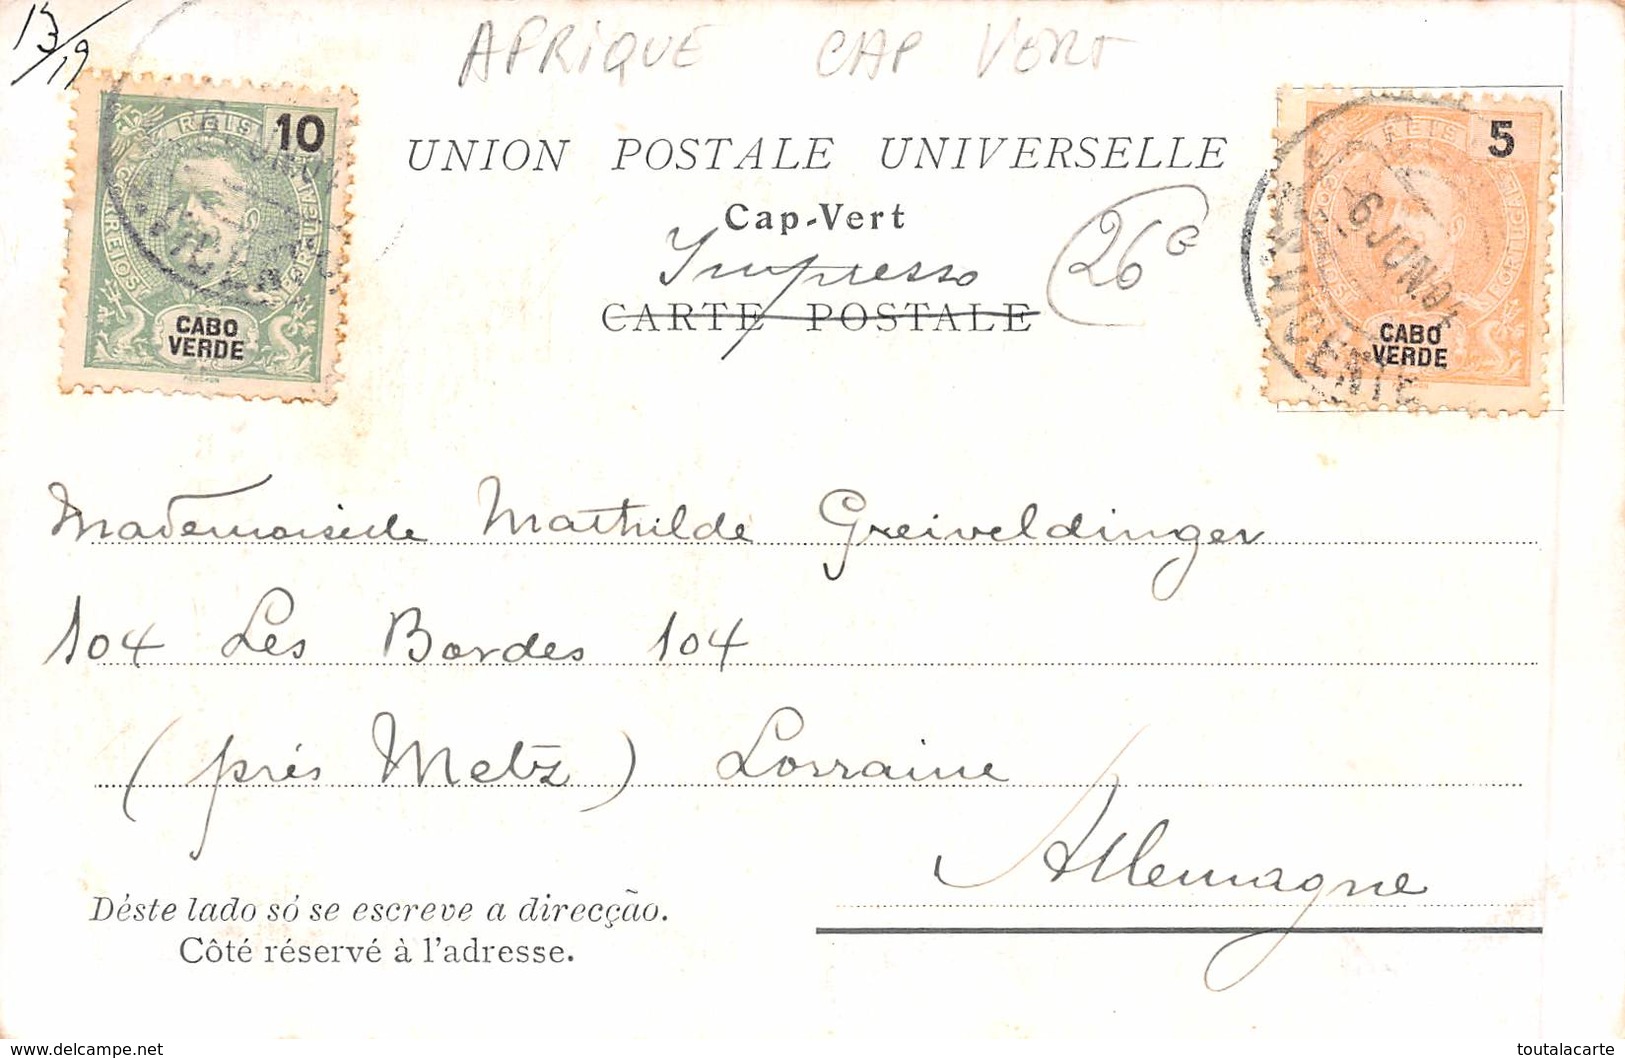 13/19
AFRIQUE CAP VERT
REIS 10
CORREIOS PORTUGAL
CABO VERDE
UNION POSTALE UNIVERSELLE
Cap-Vert
Impresso
26 G
CARTE POSTALE
REIS 5
PORTUGAL
CABO VERDE
6 JUN 01
S. VICENTE
Mademoiselle Mathilde Greiveldinger
104 Les Bordes 104
(prés Metz) Lorraine
Allemagne
Déste lado só se escreve a direcção.
Côté réservé à l'adresse.
www.delcampe.net
toutalacarte